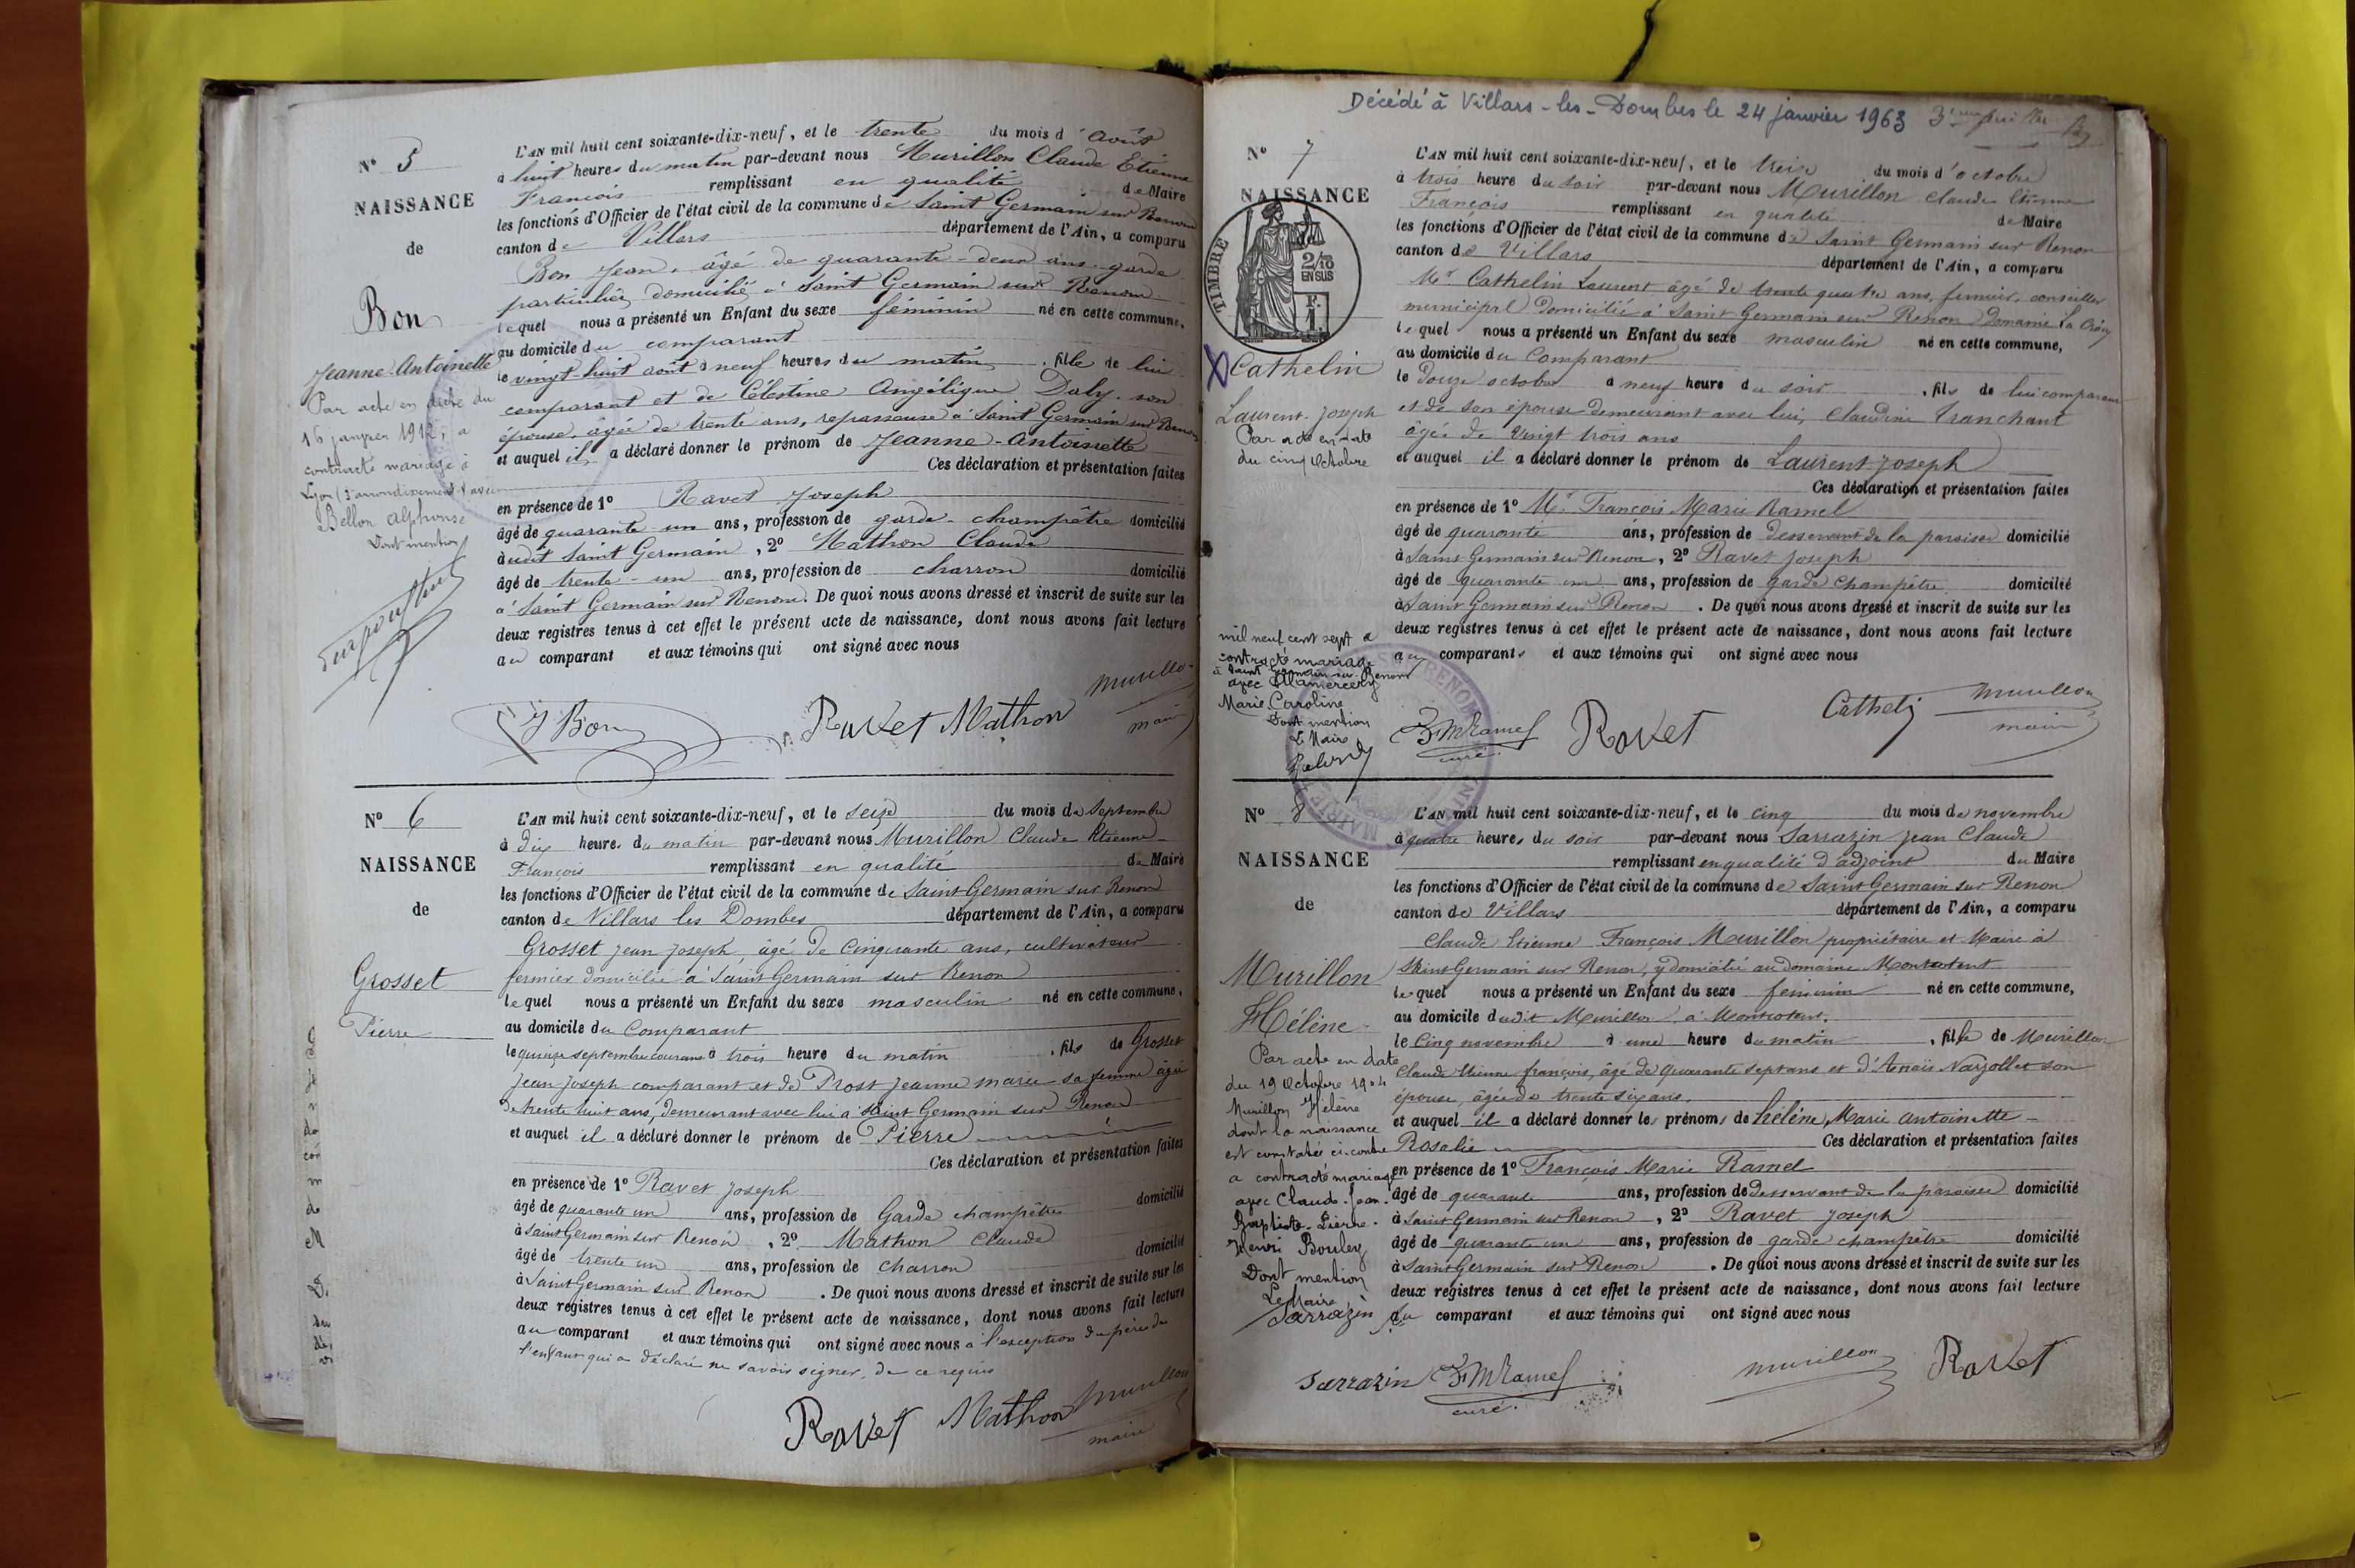 N° 5
NAISSANCE
de
Bon
Jeanne-Antoinette
Par acte en date du
16 janvier 1912, a
contracté mariage à
Lyon (3e arrondissement) avec
Bellon Alphonse
Dont mention
L'AN mil huit cent soixante-dix-neuf, et le trente du mois d'Août
à huit heures du matin par-devant nous Murillon Claude Etienne
François remplissant en qualité de Maire
les fonctions d'Officier de l'état civil de la commune de Saint Germain sur Renom
canton de Villars département de l'Ain, a comparu
Bon Jean, âgé de quarante-deux ans, garde
particulier domicilié à Saint Germain sur Renom
lequel nous a présenté un Enfant du sexe féminin né en cette commune,
au domicile du comparant
le vingt huit août à neuf heures du matin, fille de lui
comparant et de Célestine Angélique Daly son
épouse, âgée de trente ans, repasseuse à Saint Germain sur Renom
et auquel il a déclaré donner le prénom de Jeanne-Antoinette
Ces déclaration et présentation faites
en présence de 1° Ravet Joseph
âgé de quarante un ans, profession de garde-champêtre domicilié
àudit Saint Germain, 2° Mathon Claude
âgé de trente-un ans, profession de charron domicilié
à Saint Germain sur Renom. De quoi nous avons dressé et inscrit de suite sur les
deux registres tenus à cet effet le présent acte de naissance, dont nous avons fait lecture
au comparant et aux témoins qui ont signé avec nous
J Bon Ravet Mathon Murillon
maire
N° 6
NAISSANCE
de
Grosset
Pierre
L'AN mil huit cent soixante-dix-neuf, et le seize du mois de Septembre
à dix heures du matin par-devant nous Murillon Claude Etienne
François remplissant en qualité de Maire
les fonctions d'Officier de l'état civil de la commune de Saint Germain sur Renon
canton de Villars les Dombes département de l'Ain, a comparu
Grosset Jean Joseph, âgé de Cinquante ans, cultivateur
fermier domicilié à Saint Germain sur Renon
lequel nous a présenté un Enfant du sexe masculin né en cette commune,
au domicile du Comparant
le quinze septembre courant à trois heure du matin, fils de Grosset
Jean Joseph comparant et de Prost Jeanne marie sa femme âgée
de trente huit ans, demeurant avec lui à Saint Germain sur Renon
et auquel il a déclaré donner le prénom de Pierre
Ces déclaration et présentation faites
en présence de 1° Ravet Joseph
âgé de quarante un ans, profession de Garde champêtre domicilié
à Saint Germain sur Renon, 2° Mathon Claude
âgé de trente un ans, profession de charron domicilié
à Saint Germain sur Renon. De quoi nous avons dressé et inscrit de suite sur les
deux registres tenus à cet effet le présent acte de naissance, dont nous avons fait lecture
au comparant et aux témoins qui ont signé avec nous à l'exception du père de
l'enfant qui a déclaré ne savoir signer, de ce requis
Ravet Mathon Murillon
maire
Décédé à Villars-les-Dombes le 24 janvier 1963
N° 7
NAISSANCE
de
TIMBRE
2/10
EN SUS
F.
1
Cathelin
Laurent-Joseph
Par acte en date
du cinq Octobre
mil neuf cent sept a
contracté mariage
à Saint Germain sur Renom
avec Mamercery
Marie Caroline
Dont mention
Le Maire
L'AN mil huit cent soixante-dix-neuf, et le treize du mois d'octobre
à trois heure du soir par-devant nous Murillon Claude Etienne
François remplissant en qualité de Maire
les fonctions d'Officier de l'état civil de la commune de Saint Germain sur Renon
canton de Villars département de l'Ain, a comparu
Mr Cathelin Laurent âgé de trente quatre ans, fermier, conseiller
municipal domicilié à Saint Germain sur Renon Domaine
lequel nous a présenté un Enfant du sexe masculin né en cette commune,
au domicile du Comparant
le Douze octobre à neuf heure du soir, fils de lui comparant
et de son épouse demeurant avec lui, Claudine Tranchant
âgée de Vingt trois ans
et auquel il a déclaré donner le prénom de Laurent-Joseph
Ces déclaration et présentation faites
en présence de 1° Mr François Marie Ramel
âgé de quarante ans, profession de Desservant de la paroisse domicilié
à Saint Germain sur Renon, 2° Ravet Joseph
âgé de quarante un ans, profession de garde champêtre domicilié
à Saint Germain sur Renon. De quoi nous avons dressé et inscrit de suite sur les
deux registres tenus à cet effet le présent acte de naissance, dont nous avons fait lecture
au comparant et aux témoins qui ont signé avec nous
F M Ramel Ravet Cathelin Murillon
curé. maire
N° 8
NAISSANCE
de
Murillon
Hélène
Par acte en date
du 19 Octobre 1904
Murillon Hélène
dont la naissance
est constatée ci-contre
a contracté mariage
avec Claude-Jean-
Baptiste-Pierre-
Henri Bouley
Dont mention
Le Maire
Sarrazin
L'AN mil huit cent soixante-dix-neuf, et le cinq du mois de novembre
à quatre heures du soir par-devant nous Sarrazin Jean Claude
remplissant en qualité d'adjoint du Maire
les fonctions d'Officier de l'état civil de la commune de Saint Germain sur Renon
canton de Villars département de l'Ain, a comparu
Claude Etienne François Murillon propriétaire et Maire à
Saint Germain sur Renon, y domicilié au domaine
lequel nous a présenté un Enfant du sexe féminin né en cette commune,
au domicile dudit Murillon à
le Cinq novembre à une heure du matin, fille de Murillon
Claude Etienne françois, âgé de quarante sept ans et d'Anaïs Nayollet son
épouse, âgée de trente six ans.
et auquel il a déclaré donner les prénoms de hélène, Marie Antoinette-
Rosalie Ces déclaration et présentation faites
en présence de 1° François Marie Ramel
âgé de quarante ans, profession de desservant de la paroisse domicilié
à Saint Germain sur Renon, 2° Ravet Joseph
âgé de quarante un ans, profession de garde champêtre domicilié
à Saint Germain sur Renon. De quoi nous avons dressé et inscrit de suite sur les
deux registres tenus à cet effet le présent acte de naissance, dont nous avons fait lecture
au comparant et aux témoins qui ont signé avec nous
Sarrazin F M Ramel Murillon Ravet
curé.